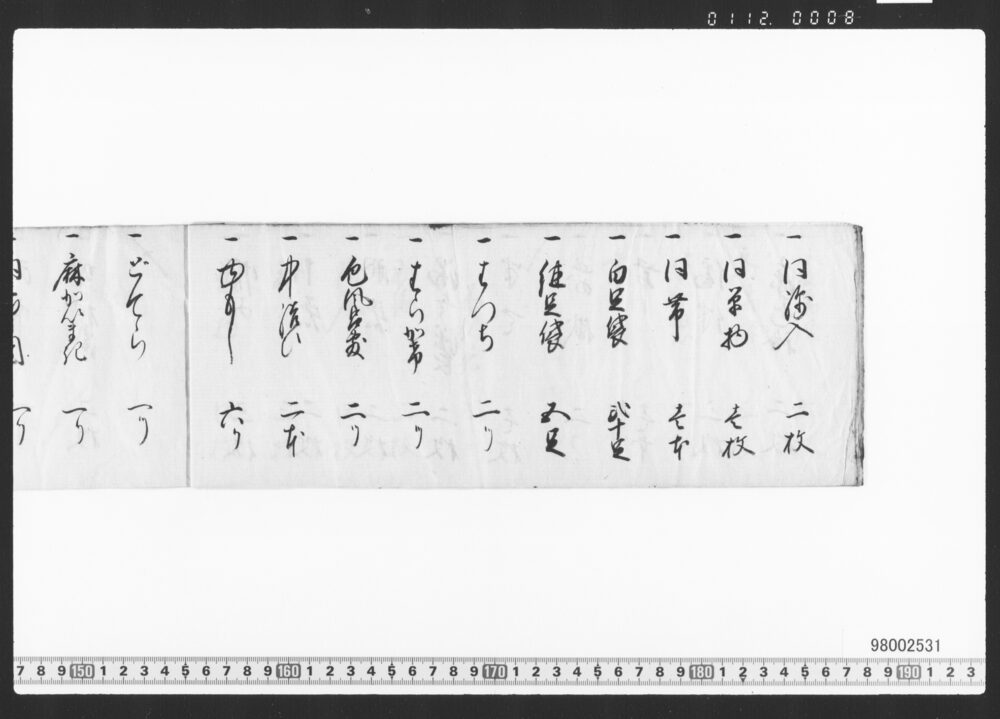 0112. 0008
一 同綿入 二枚
一 同単物 壱枚
一 同帯 壱本
一 白足袋 弐十足
一 継足袋 五足
一 もつち 二ツ
一 二ツ
一 風呂敷 二ツ
一 二本
一 六ツ
一 どてら 一ツ
一 麻かいまき 一ツ
一 同 一ツ
98002531
7 8 9 150 1 2 3 4 5 6 7 8 9 160 1 2 3 4 5 6 7 8 9 170 1 2 3 4 5 6 7 8 9 180 1 2 3 4 5 6 7 8 9 190 1 2 3